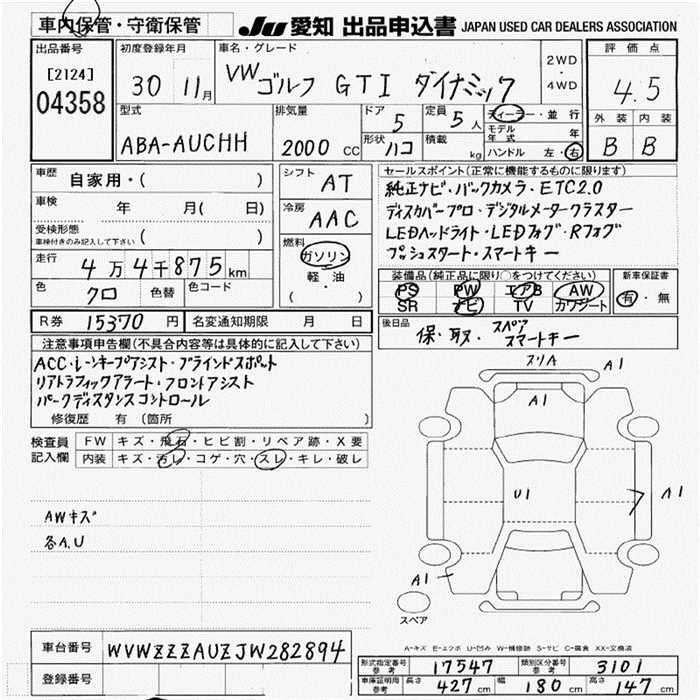 車内保管・守衛保管
JU 愛知 出品申込書 JAPAN USED CAR DEALERS ASSOCIATION
出品番号
[2124]
04358
初度登録年月
30 11月
車名・グレード
VW ゴルフ GTI ダイナミック
2WD
・
4WD
評価点
4.5
外装 内装
B B
型式
ABA-AUCHH
排気量
2000 CC
ドア
5
形状 ハコ
定員
5人
積載 kg
ディーラー・並行
モデル年式 年
ハンドル 左・右
車歴 自家用・( )
車検 年 月( 日)
受検形態
車検付きのみ記入して下さい ( )
走行 4万4千875km
色 クロ 色替 色コード
シフト
AT
冷房
AAC
燃料
ガソリン
軽・油
( )
セールスポイント(正常に機能するものに限ります)
純正ナビ・バックカメラ・ETC2.0
ディスカバープロ・デジタルメータークラスター
LEDヘッドライト・LEDフォグ・Rフォグ
プッシュスタート・スマートキー
装備品(純正品に限り○をつけてください)
PS PW エアB AW
SR ナビ TV カワシート
新車保証書
有・無
R券 15370円 名変通知期限 月 日
後日品
保・取・スペア
スマートキー
注意事項申告欄(不具合内容等は具体的に記入して下さい)
ACC・レーンキープアシスト・ブラインドスポット
リアトラフィックアラート・フロントアシスト
パークディスタンスコントロール
修復歴 有 (箇所 )
検査員
記入欄
FW キズ・飛石・ヒビ割・リペア跡・X要
内装 キズ・汚レ・コゲ・穴・スレ・キレ・破レ
AWキズ
各A.U
スリA
A1
A1
U1
A1
A1
スペア
A-キズ E-エクボ U-凹み W-補修跡 S-サビ C-腐食 XX-交換済
車台番号 WVWZZZAUZJW282894
登録番号
形式指定番号 参考 17547 類別区分番号 参考 3101
車庫証明用 参考 長さ 427cm 幅 180cm 高さ 147cm